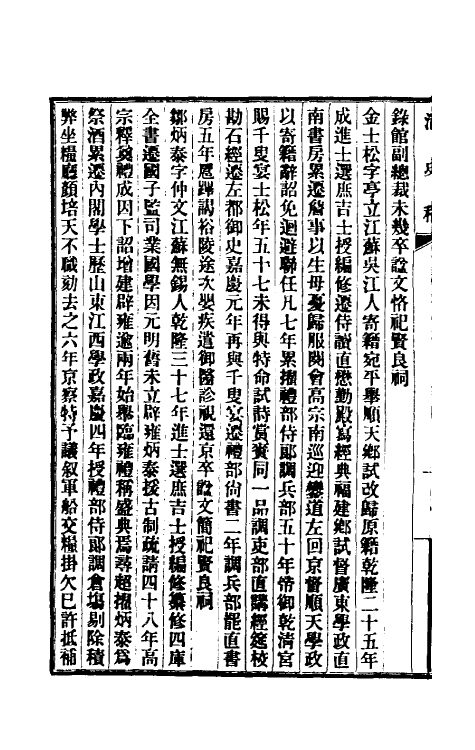 錄館副總裁未幾卒諡文恪祀賢良祠
金士松字亭立江蘇吳江人寄籍宛平舉順天鄉試改歸原籍乾隆二十五年
成進士選庶吉士授編修遷侍讀直懋勤殿寫經典福建鄉試督廣東學政直
南書房累遷詹事以生母憂歸服闋會高宗南巡迎鑾道左回京督順天學政
以寄籍辭詔免迴避聯任凡七年累擢禮部侍郎調兵部五十年帝御乾清宮
賜千叟宴士松年五十七未得與特命試詩賞賚同一品調吏部直講經筵校
勘石經遷左都御史嘉慶元年再與千叟宴遷禮部尚書二年調兵部罷直書
房五年扈蹕謁裕陵途次嬰疾遣御醫診視還京卒諡文簡祀賢良祠
鄒炳泰字仲文江蘇無錫人乾隆三十七年進士選庶吉士授編修纂修四庫
全書遷國子監司業國學因元明舊未立辟雍炳泰援古制疏請四十八年高
宗釋奠禮成因下詔增建辟雍逾兩年始舉臨雍禮稱盛典焉尋超擢炳泰爲
祭酒累遷內閣學士歷山東江西學政嘉慶四年授禮部侍郎調倉場剔除積
弊坐糧廳顏培天不職劾去之六年京察特予議敘軍船交糧掛欠已許抵補